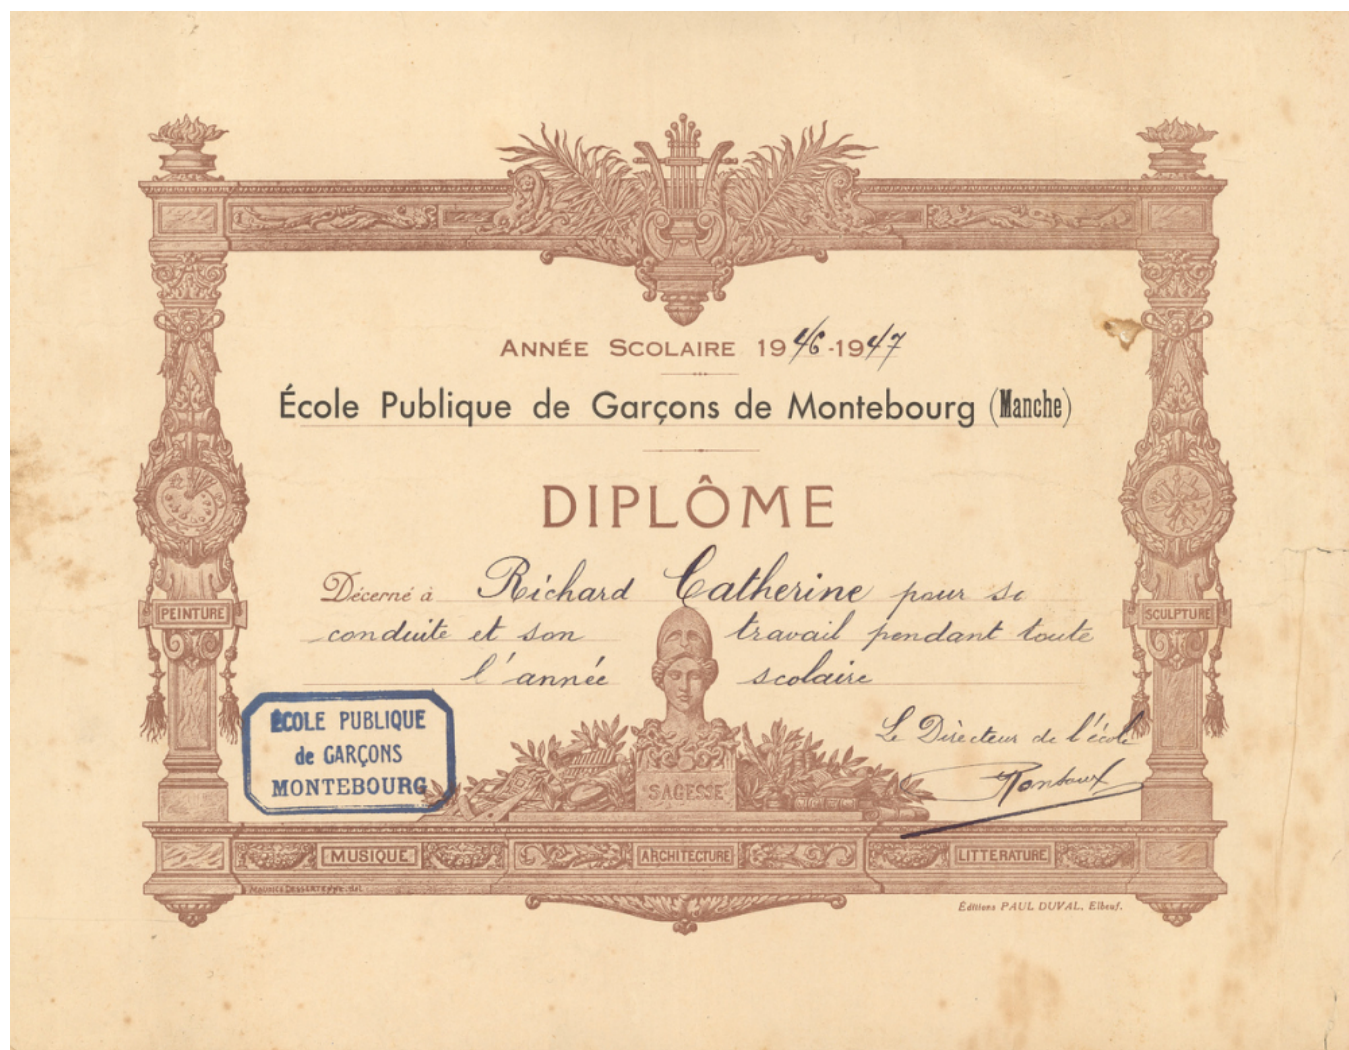 ANNÉE SCOLAIRE 1946-1947
École Publique de Garçons de Montebourg (Manche)
DIPLÔME
Décerné à Richard Catherine pour sa
conduite et son travail pendant toute
l'année scolaire
PEINTURE
SCULPTURE
ÉCOLE PUBLIQUE
de GARÇONS
MONTEBOURG
Le Directeur de l'école
SAGESSE
MUSIQUE
ARCHITECTURE
LITTERATURE
MAURICE DESSERTENNE. del.
Éditions PAUL DUVAL, Elbeuf.